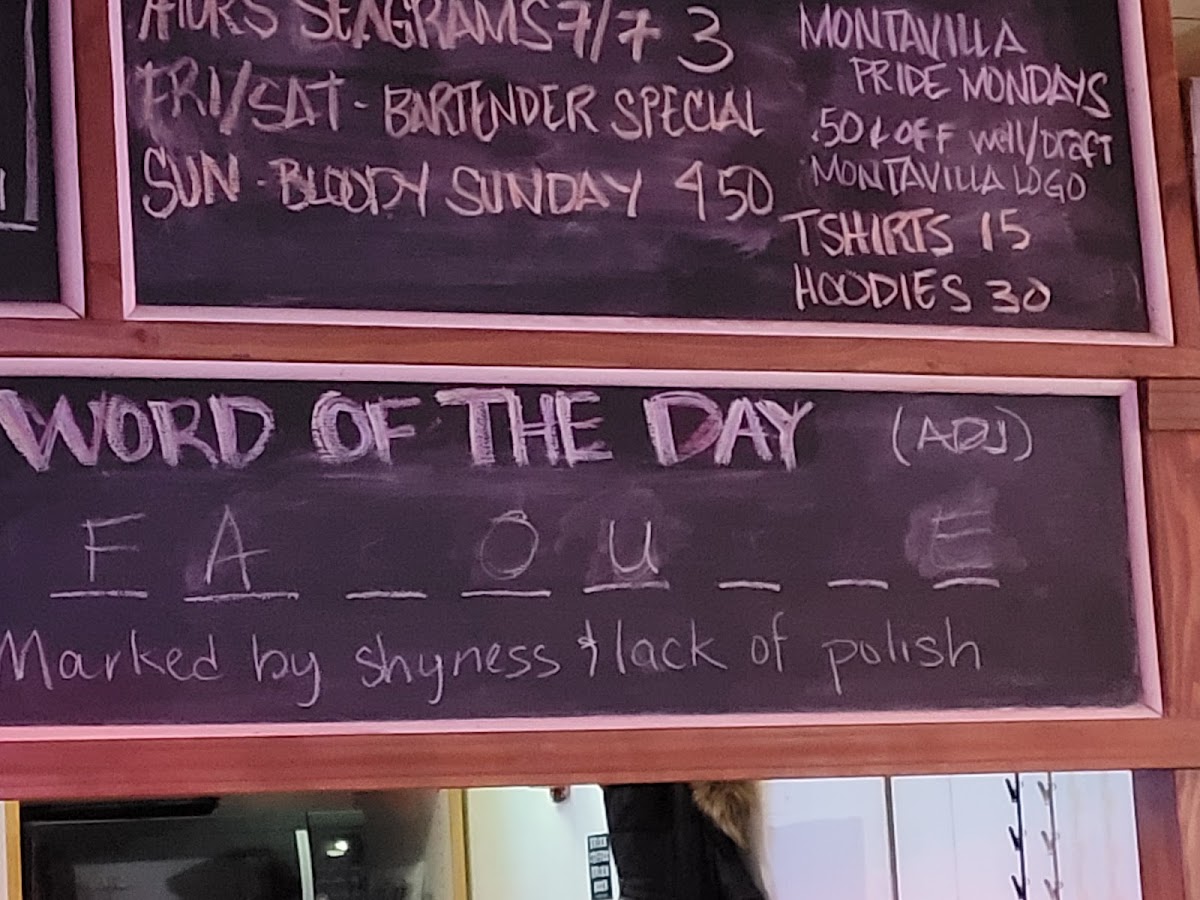 THURS SEAGRAMS 7/7 3
FRI/SAT - BARTENDER SPECIAL
SUN - BLOODY SUNDAY 450
MONTAVILLA
PRIDE MONDAYS
.50¢ OFF well/Draft
MONTAVILLA LOGO
TSHIRTS 15
HOODIES 30
WORD OF THE DAY (ADJ)
F A _ O U _ _ E
Marked by shyness & lack of polish